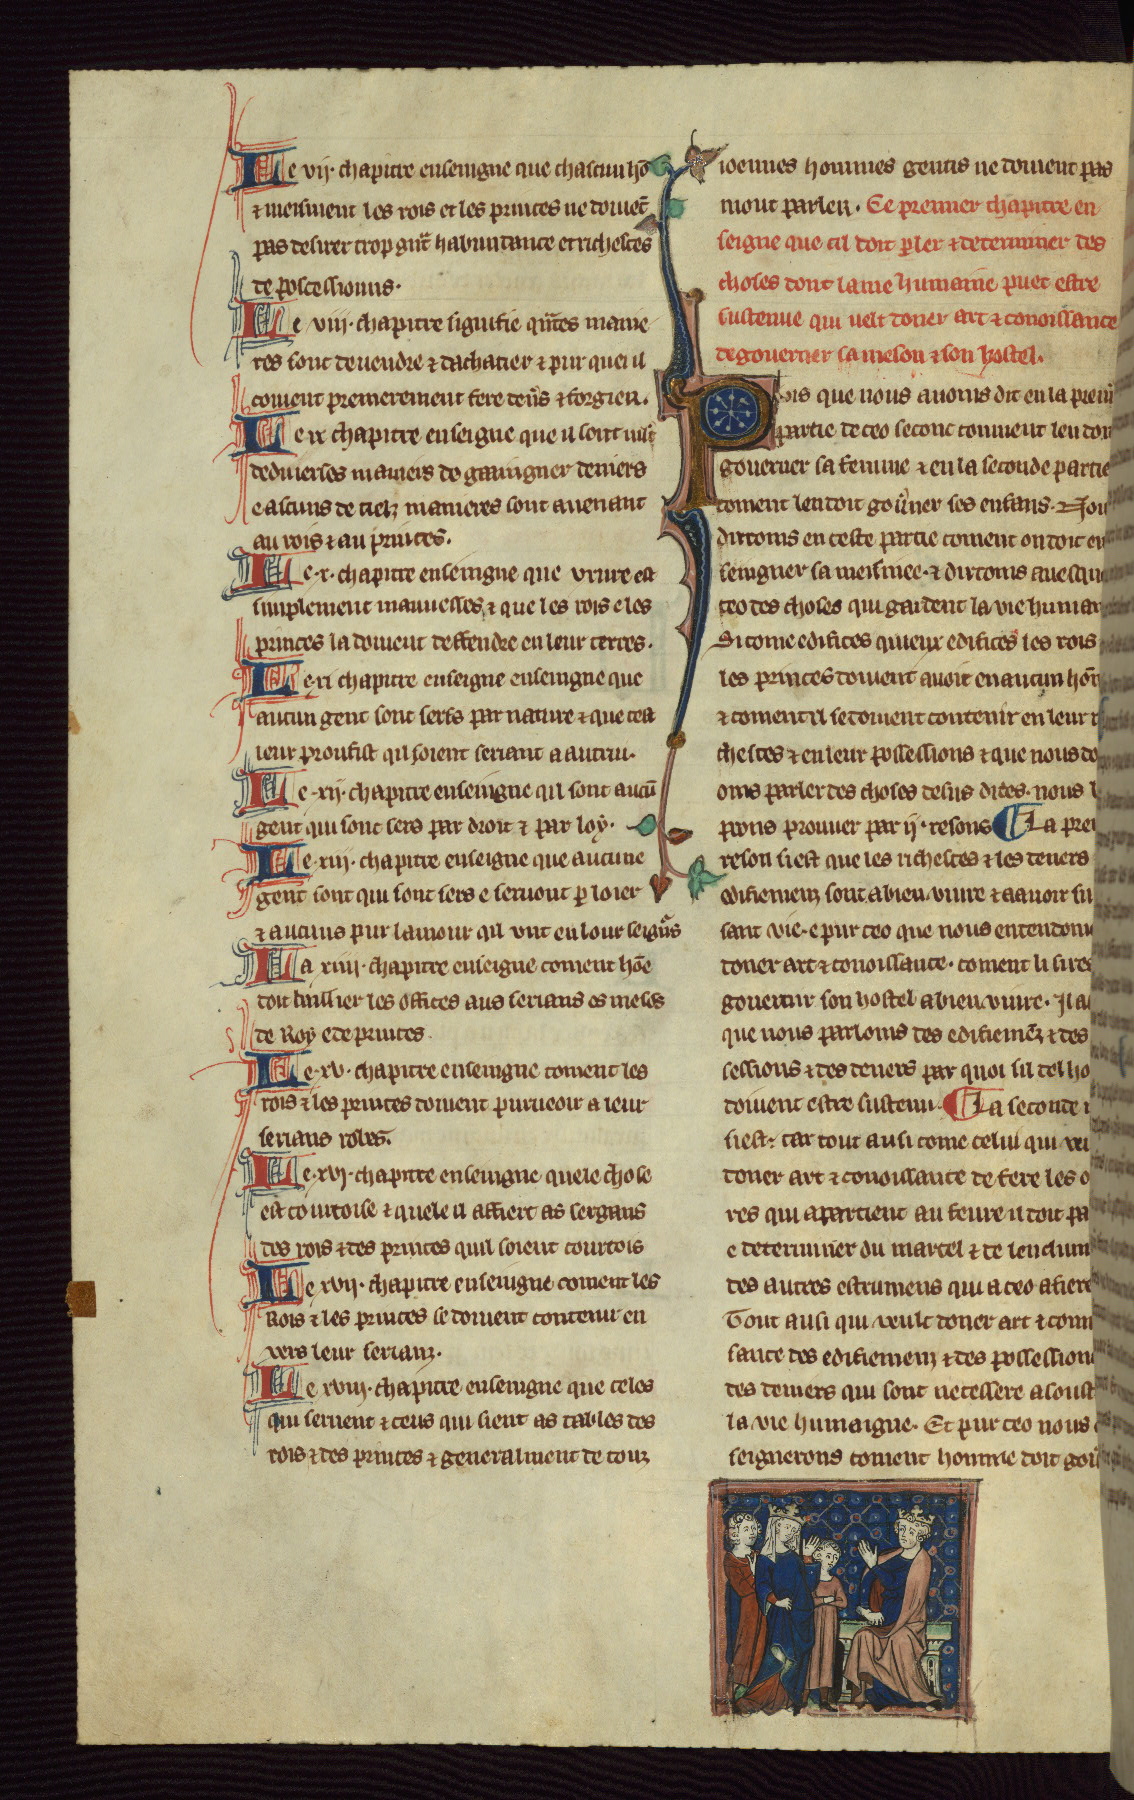 Le vij. chapitre enseingne que chascun hō
⁊ meisment les rois et les princes ne doiuēt
pas desirer trop grāt habundance et richesces
de poscessionns.
Le viij. chapitre signifie quātes manie
res sont de uendre ⁊ dachatier ⁊ pur quei il
couient premerement fere deñs ⁊ forgien.
Le ix chapitre enseigne que il sont
de diuerses maniers de gaaingner deniers
e ascuns de tielz manieres sont auenant
au rois ⁊ au princes.
Le .x. chapitre enseingne que vsure est
simplement mauuesses ⁊ que les rois e les
princes la doiuent deffendre en leur terres.
Le xi chapitre enseigne enseingne que
aucun gent sont serfs par nature ⁊ que cest
leur proufist qil soient seriant a autrui.
Le .xij. chapitre enseingne qil sont aucū
gent qui sont sers par droit ⁊ par loy.
Le .xiij. chapitre enseigne que aucune
gent sont qui sont sers e seruont p loier
⁊ aucuns pur lamour qil unt en lour seignrs
La xiiij. chapitre enseigne coment hōe
doit baillier les offices aus serians es mesōs
de Roy e de princes.
Le .xv. chapitre enseingne coment les
rois ⁊ les princes doiuent purueoir a leur
serians robes.
Le .xvj. chapitre enseingne quele chose
est courtoise ⁊ quele il affiert as sergans
des rois ⁊ des princes quil soient courtois
Le xvij. chapitre enseingne coment les
Rois ⁊ les princes se doiuent contenir en
vers leur serianz.
Le xviij. chapitre enseingne que celes
qui seruent ⁊ ceus qui sient as tables des
rois ⁊ des princes ⁊ generalment de touz
ioennes hommes gentis ne doiuent pas
mout parler. Ce premier chapitre en
seigne que cil doit pler ⁊ determiner des
choses dont lame humaine puet estre
sustenue qui uelt doner art ⁊ conoissance
de gouerner sa meson ⁊ son hostel.
Pois que nous auoms dit en la prem
partie de ceo seconc comment len doit
gouerner sa femme ⁊ en la seconde partie
coment len doit gouner ses enfans. Nou
dirroms en ceste partie coment on doit en
seingner sa meisnee. ⁊ dirroms auesque
ceo des choses qui gardent la vie humai
Si come edifices quieux edifices les rois
les princes doiuent auoir en aucun hōn
⁊ coment il se doiuent contenir en leur ri
chesces ⁊ en leur possessions ⁊ que nous do
oms parler des choses desus dites. nous
poons prouuer par ij. resons La pre
reson si est que les richesces ⁊ les deners
edifiemenz sont a bien viure ⁊ a auoir su
sant vie. e pur ceo que nous entendoms
doner art ⁊ conoissance. coment li sires
gouernir son hostel a bien viure. Il a
que nous parloms des edifiemēz ⁊ des
sessions ⁊ des deners par quoi sil tel ho
doiuent estre sustenu. La seconde
si est. car tout ausi come celui qui veu
doner art ⁊ conoissance de fere les o
res qui apartient au feure il doit pa
e determiner du martel ⁊ de lenclum
des autres estrumens qui a ceo afiere
Tout ausi qui veult doner art ⁊ coni
sance des edifiemenz ⁊ des possession
des deniers qui sont necessere a soust
la vie humaigne. Et pur ceo nous
seignerons coment homme doit goū